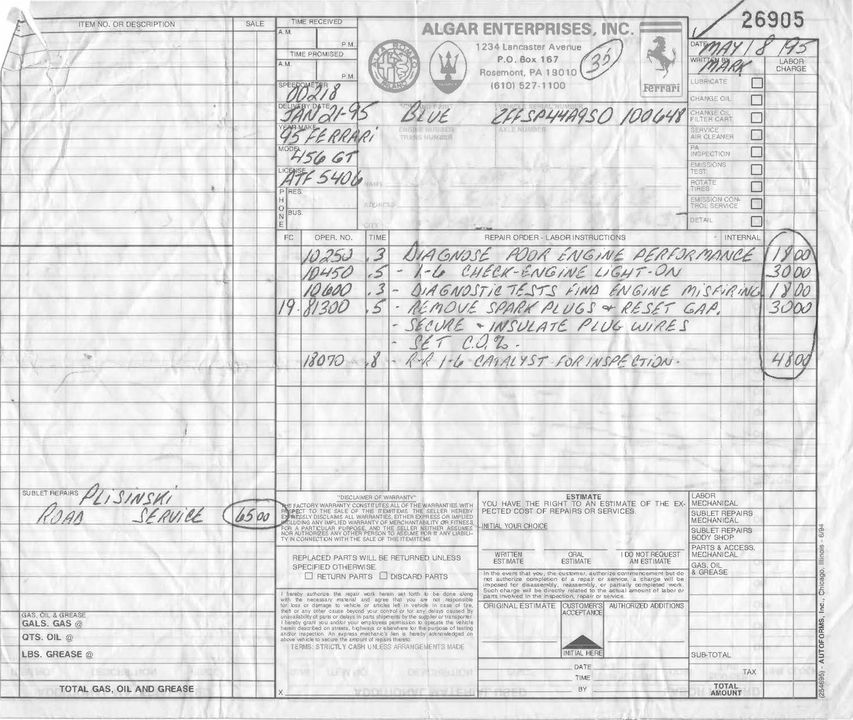 ITEM NO. OR DESCRIPTION SALE
TIME RECEIVED
A.M.
P.M.
TIME PROMISED
A.M.
P.M.
ALGAR ENTERPRISES, INC.
1234 Lancaster Avenue
P.O. Box 167
Rosemont, PA 19010
(610) 527-1100
35
ALFA ROMEO
MILANO
MASERATI
Ferrari
26905
DATE MAY 18 95
WRITTEN BY MARK
LABOR CHARGE
LUBRICATE
CHANGE OIL
CHANGE OIL FILTER CART.
SERVICE AIR CLEANER
PA INSPECTION
EMISSIONS TEST
ROTATE TIRES
EMISSION CONTROL SERVICE
DETAIL
SPEEDOMETER 00218
DELIVERY DATE JAN 21-95 BLUE ZFFSP44A9S0 100648
YEAR MAKE 95 FERRARI
MODEL 456 GT
LICENSE ATF 5406
PHONE
RES.
BUS.
FC OPER. NO. TIME REPAIR ORDER - LABOR INSTRUCTIONS INTERNAL
10250 .3 DIAGNOSE POOR ENGINE PERFORMANCE 18 00
10450 .5 - 1-6 CHECK-ENGINE LIGHT-ON 30 00
10600 .3 - DIAGNOSTIC TESTS FIND ENGINE MISFIRING 18 00
19 81300 .5 - REMOVE SPARK PLUGS & RESET GAP. 30 00
- SECURE & INSULATE PLUG WIRES
- SET C.O.%.
18070 .8 - R-R 1-6 CATALYST FOR INSPECTION. 48 00
SUBLET REPAIRS PLISINSKI
ROAD SERVICE 65 00
GAS, OIL & GREASE
GALS. GAS @
QTS. OIL @
LBS. GREASE @
TOTAL GAS, OIL AND GREASE
"DISCLAIMER OF WARRANTY"
THE FACTORY WARRANTY CONSTITUTES ALL OF THE WARRANTIES WITH
RESPECT TO THE SALE OF THIS ITEM/ITEMS. THE SELLER HEREBY
EXPRESSLY DISCLAIMS ALL WARRANTIES, EITHER EXPRESS OR IMPLIED
INCLUDING ANY IMPLIED WARRANTY OF MERCHANTABILITY OR FITNESS
FOR A PARTICULAR PURPOSE, AND THE SELLER NEITHER ASSUMES
NOR AUTHORIZES ANY OTHER PERSON TO ASSUME FOR IT ANY LIABILI-
TY IN CONNECTION WITH THE SALE OF THIS ITEM/ITEMS
REPLACED PARTS WILL BE RETURNED UNLESS
SPECIFIED OTHERWISE.
RETURN PARTS DISCARD PARTS
I hereby authorize the repair work herein set forth to be done along
with the necessary material and agree that you are not responsible
for loss or damage to vehicle or articles left in vehicle in case of fire,
theft or any other cause beyond your control or for any delays caused by
unavailability of parts or delays in parts shipments by the supplier or transporter.
I hereby grant you and/or your employees permission to operate the vehicle
herein described on streets, highways or elsewhere for the purpose of testing
and/or inspection. An express mechanic's lien is hereby acknowledged on
above vehicle to secure the amount of repairs thereto.
TERMS: STRICTLY CASH UNLESS ARRANGEMENTS MADE
X
ESTIMATE
YOU HAVE THE RIGHT TO AN ESTIMATE OF THE EX-
PECTED COST OF REPAIRS OR SERVICES.
INITIAL YOUR CHOICE
WRITTEN ESTIMATE ORAL ESTIMATE I DO NOT REQUEST AN ESTIMATE
In the event that you, the customer, authorize commencement but do
not authorize completion of a repair or service, a charge will be
imposed for disassembly, reassembly, or partially completed work.
Such charge will be directly related to the actual amount of labor or
parts involved in the inspection, repair or service.
ORIGINAL ESTIMATE CUSTOMER'S ACCEPTANCE AUTHORIZED ADDITIONS
INITIAL HERE
DATE
TIME
BY
LABOR MECHANICAL
SUBLET REPAIRS MECHANICAL
SUBLET REPAIRS BODY SHOP
PARTS & ACCESS. MECHANICAL
GAS, OIL & GREASE
SUB-TOTAL
TAX
TOTAL AMOUNT
(254695) - AUTOFORMS, Inc. - Chicago, Illinois - 6/94